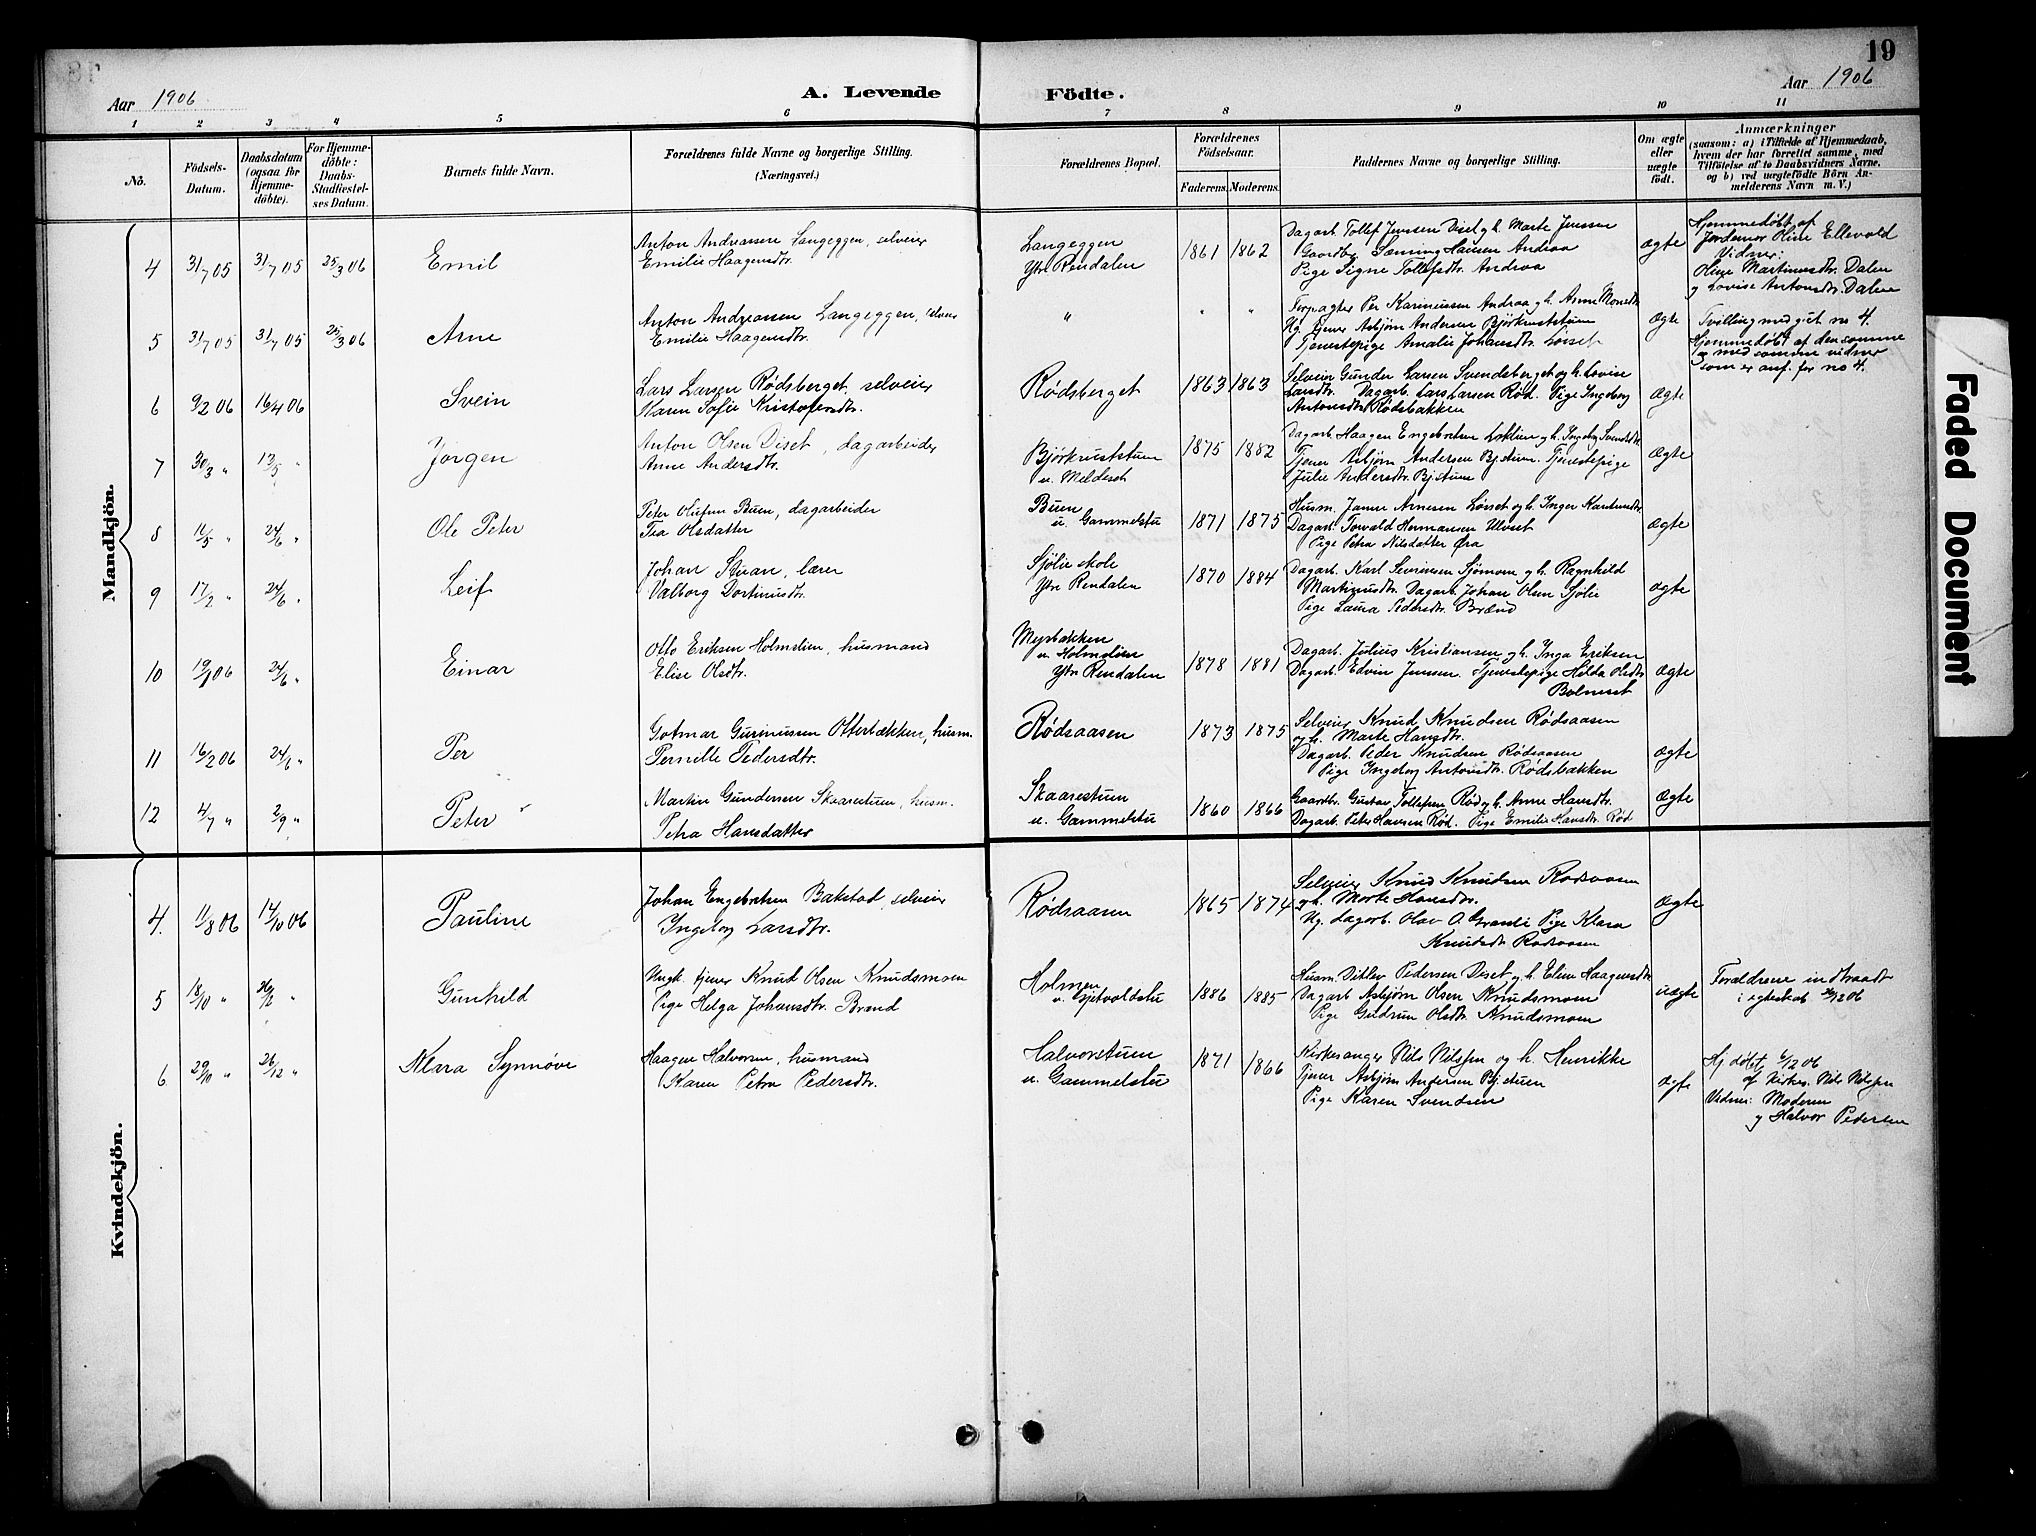 19
Aar 1906
A. Levende Födte.
Aar 1906
1 2 3 4 5 6 7 8 9 10 11
No.
Födsels-Datum.
Daabsdatum (ogsaa for Hjemmedöbte).
For Hjemmedöbte: Daabs-Stadfæstelses Datum.
Barnets fulde Navn.
Forældrenes fulde Navne og borgerlige Stilling.
(Næringsvei.)
Forældrenes Bopæl.
Forældrenes Födselsaar.
Faderens. Moderens.
Faddernes Navne og borgerlige Stilling.
Om ægte eller uægte födt.
Anmærkninger
(saasom: a) i Tilfælde af Hjemmedaab, hvem der har forrettet samme, med Tilföielse af to Daabsvidners Navne, og b) ved uægtefödte Börn Anmelderens Navn m. V.)
Mandkjön.
4 31/7 05 31/7 05 25/3 06 Emil
Anton Andreassen Langeggen, selveier
Emilie Haagensdtr.
Langeggen
Ytr. Rendalen
1861 1862
Dagarb. Tollef Jenssen Diset og h. Marte Jenssen
Gaardbr. Sæming Hansen Andraa
Pige Signe Tollefsdtr. Andraa
ægte
Hjemmedøbt af
Jordemor Oline Ellevold
Vidner:
Oline Martinusdtr. Dalen
og Lovise Antonsdtr. Dalen
5 31/7 05 31/7 05 25/3 06 Arne
Anton Andreassen Langeggen, selveier
Emilie Haagensdtr.
" " "
Forpagter Per Karinussen Andraa og h. Anne Monsdtr.
Ug. Tjener Asbjørn Andersen Bjørkruststuen
Tjenestepige Amalie Johansdtr. Løset
ægte
Tvilling med gut no 4.
Hjemmedøbt af den samme
og med samme vidner
som er anf. for no 4.
6 9/2 06 16/4 06 Svein
Lars Larsen Rødsberget, selveier
Karen Sofie Kristofersdtr.
Rødsberget
1863 1863
Selveier Gunder Larsen Svendsberget og h. Lovise
Larsdtr. Dagarb. Lars Larsen Rød. Pige Ingeborg
Antonsdtr. Rødsbakken
ægte
7 30/3 " 13/5 " Jørgen
Anton Olsen Diset, dagarbeider
Anne Andersdtr.
Bjørkruststuen
u. Meldeset
1875 1882
Dagarb. Haagen Engebretsen og h. Ingeborg
Tjener Asbjørn Andersen Bj.stuen. Tjenestepige
Julie Andersdtr. Bj.stuen
ægte
8 11/5 " 24/6 " Ole Peter
Peter Olufsen Buen, dagarbeider
Tea Olsdatter
Buen
u. Gammelstu
1871 1875
Husm. Arnesen Løset og h. Inger
Dagarb. Torvald Hermansen Ulvset
Pige Petra Nilsdatter Øra
ægte
9 17/2 " 24/6 " Leif
Johan, lærer
Valborg
Sjølie skole
Ytr. Rendalen
1870 1884
Dagarb. Karl Severinsen Sjømoen og h. Ragnhild
Martinusdtr. Dagarb. Johan Olsen Sjølie
Pige Laura Pedersdtr. Brænd
ægte
10 19/1 06 24/6 " Einar
Otto Eriksen Holmelien, husmand
Elise Olsdtr.
Myrbakken
u. Holmelien
Ytr. Rendalen
1878 1881
Dagarb. Julius Kristiansen og h. Inga Eriksen
Dagarb. Edvin Jenssen. Tjenestepige Hilda Olsdtr.
Bolneset
ægte
11 16/2 06 24/6 " Per
Gotmar Gurinussen Otterbækken, husm.
Pernelle Pedersdtr.
Rødsaasen
1873 1875
Selveier Knud Knudsen Rødsaasen
og h. Marte Hansdtr.
Dagarb. Peder Knudsen Rødsaasen
Pige Ingeborg Antonsdtr. Rødsbakken
ægte
12 4/7 " 2/9 " Peter
Martin Gundersen Skaarestuen, husm.
Petra Hansdatter
Skaarestuen
u. Gammelstu
1860 1866
Gaardbr. Gustav Tollefsen Rød og h. Anne Hansdtr.
Dagarb. Peter Hansen Rød. Pige Emilie Hansdtr. Rød
ægte
Kvindekjön.
4. 11/8 06 14/10 06 Pauline
Johan Engebretsen Bakstad, selveier
Ingeborg Larsdtr.
Rødsaasen
1865 1874
Selveier Knud Knudsen Rødsaasen
og h. Marte Hansdtr.
Ug. dagarb. Olav O. Pige Klara
Knudsdtr. Rødsaasen
ægte
5 18/10 " 26/12 " Gunhild
Ungk. tjener Knud Olsen Knudsmoen
Pige Helga Johansdtr. Brænd
Holmen
1886 1885
Husm. Ditlev Pedersen Diset og h. Eline Haagensdtr.
Dagarb. Asbjørn Olsen Knudsmoen
Pige Gudrun Olsdtr. Knudsmoen
uægte
Forældrene indtraadt
i egteskab 26/12 06
6 29/10 " 26/12 " Klara Synnøve
Haagen Halvorsen, husmand
Karen Petra Pedersdtr.
Halvorstuen
u. Gammelstu
1871 1866
Kirkesanger Nils Nilssen og h. Henrikke
Tjener Asbjørn Andersen Bj.stuen
Pige Karen Svendsen
ægte
Hj. døbt 6/12 06
af Kirkes. Nils Nilssen
Vidner: Moderen
og Halvor Pedersen
Faded Document